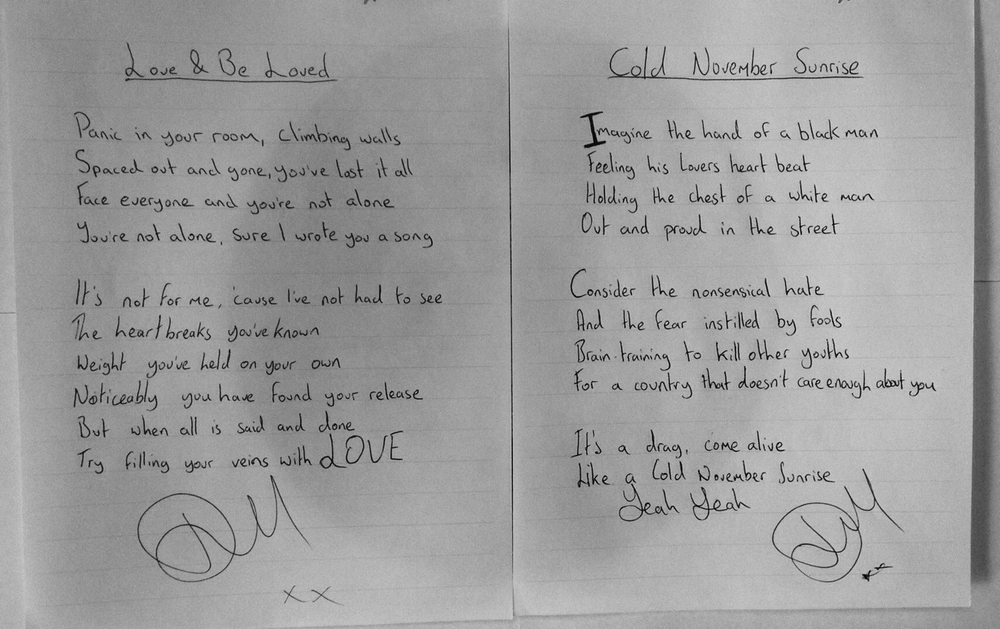 Love & Be Loved
Panic in your room, Climbing walls
Spaced out and gone, you've lost it all
Face everyone and you're not alone
You're not alone, sure I wrote you a song
It's not for me, 'cause I've not had to see
The heartbreaks you've known
Weight you've held on your own
Noticeably you have found your release
But when all is said and done
Try filling your veins with LOVE
xx
Cold November Sunrise
Imagine the hand of a black man
Feeling his Lovers heart beat
Holding the chest of a white man
Out and proud in the street
Consider the nonsensical hate
And the fear instilled by fools
Brain-training to kill other youths
For a country that doesn't care enough about you
It's a drag, come alive
Like a Cold November Sunrise
Yeah Yeah
xx